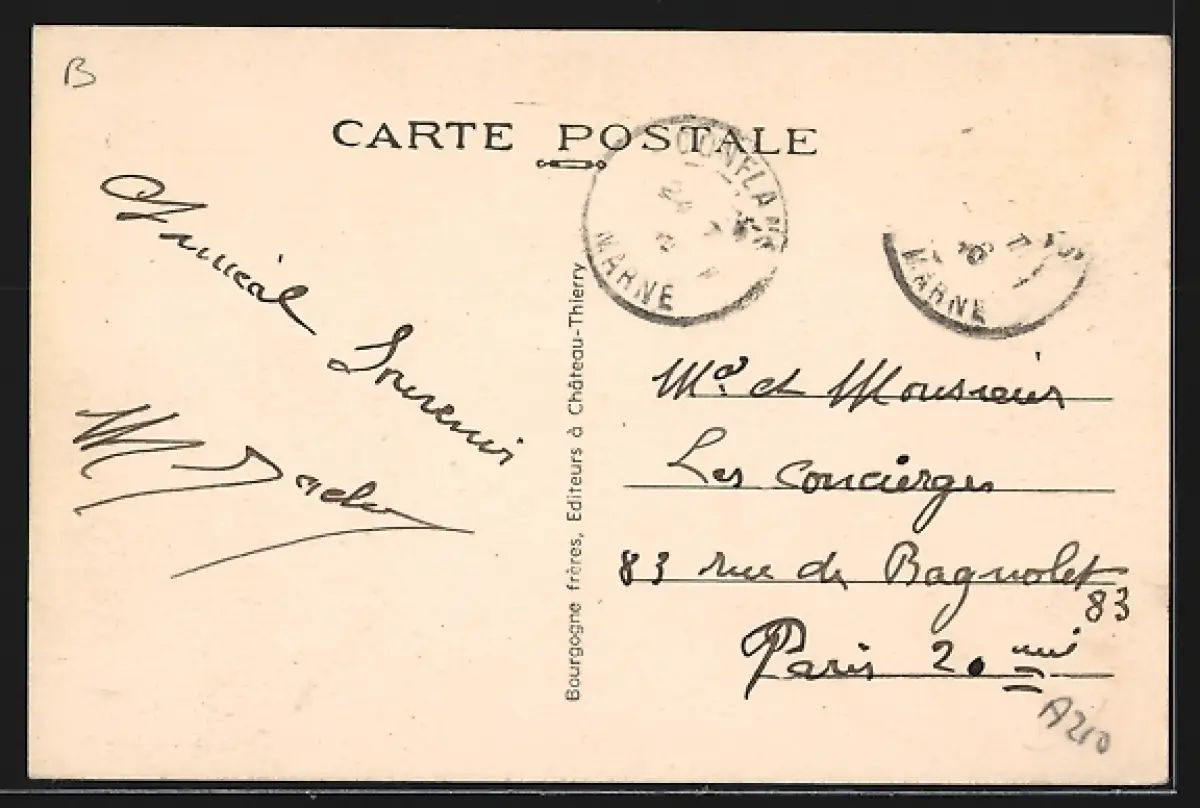 B
CARTE POSTALE
CONFLANS
MARNE
MARNE
Amical
Souvenir
M
Bourgogne frères, Editeurs à Château-Thierry
Md. et Monsieur
Les Concierges
83 rue de Bagnolet
83
Paris 20 eme
A210